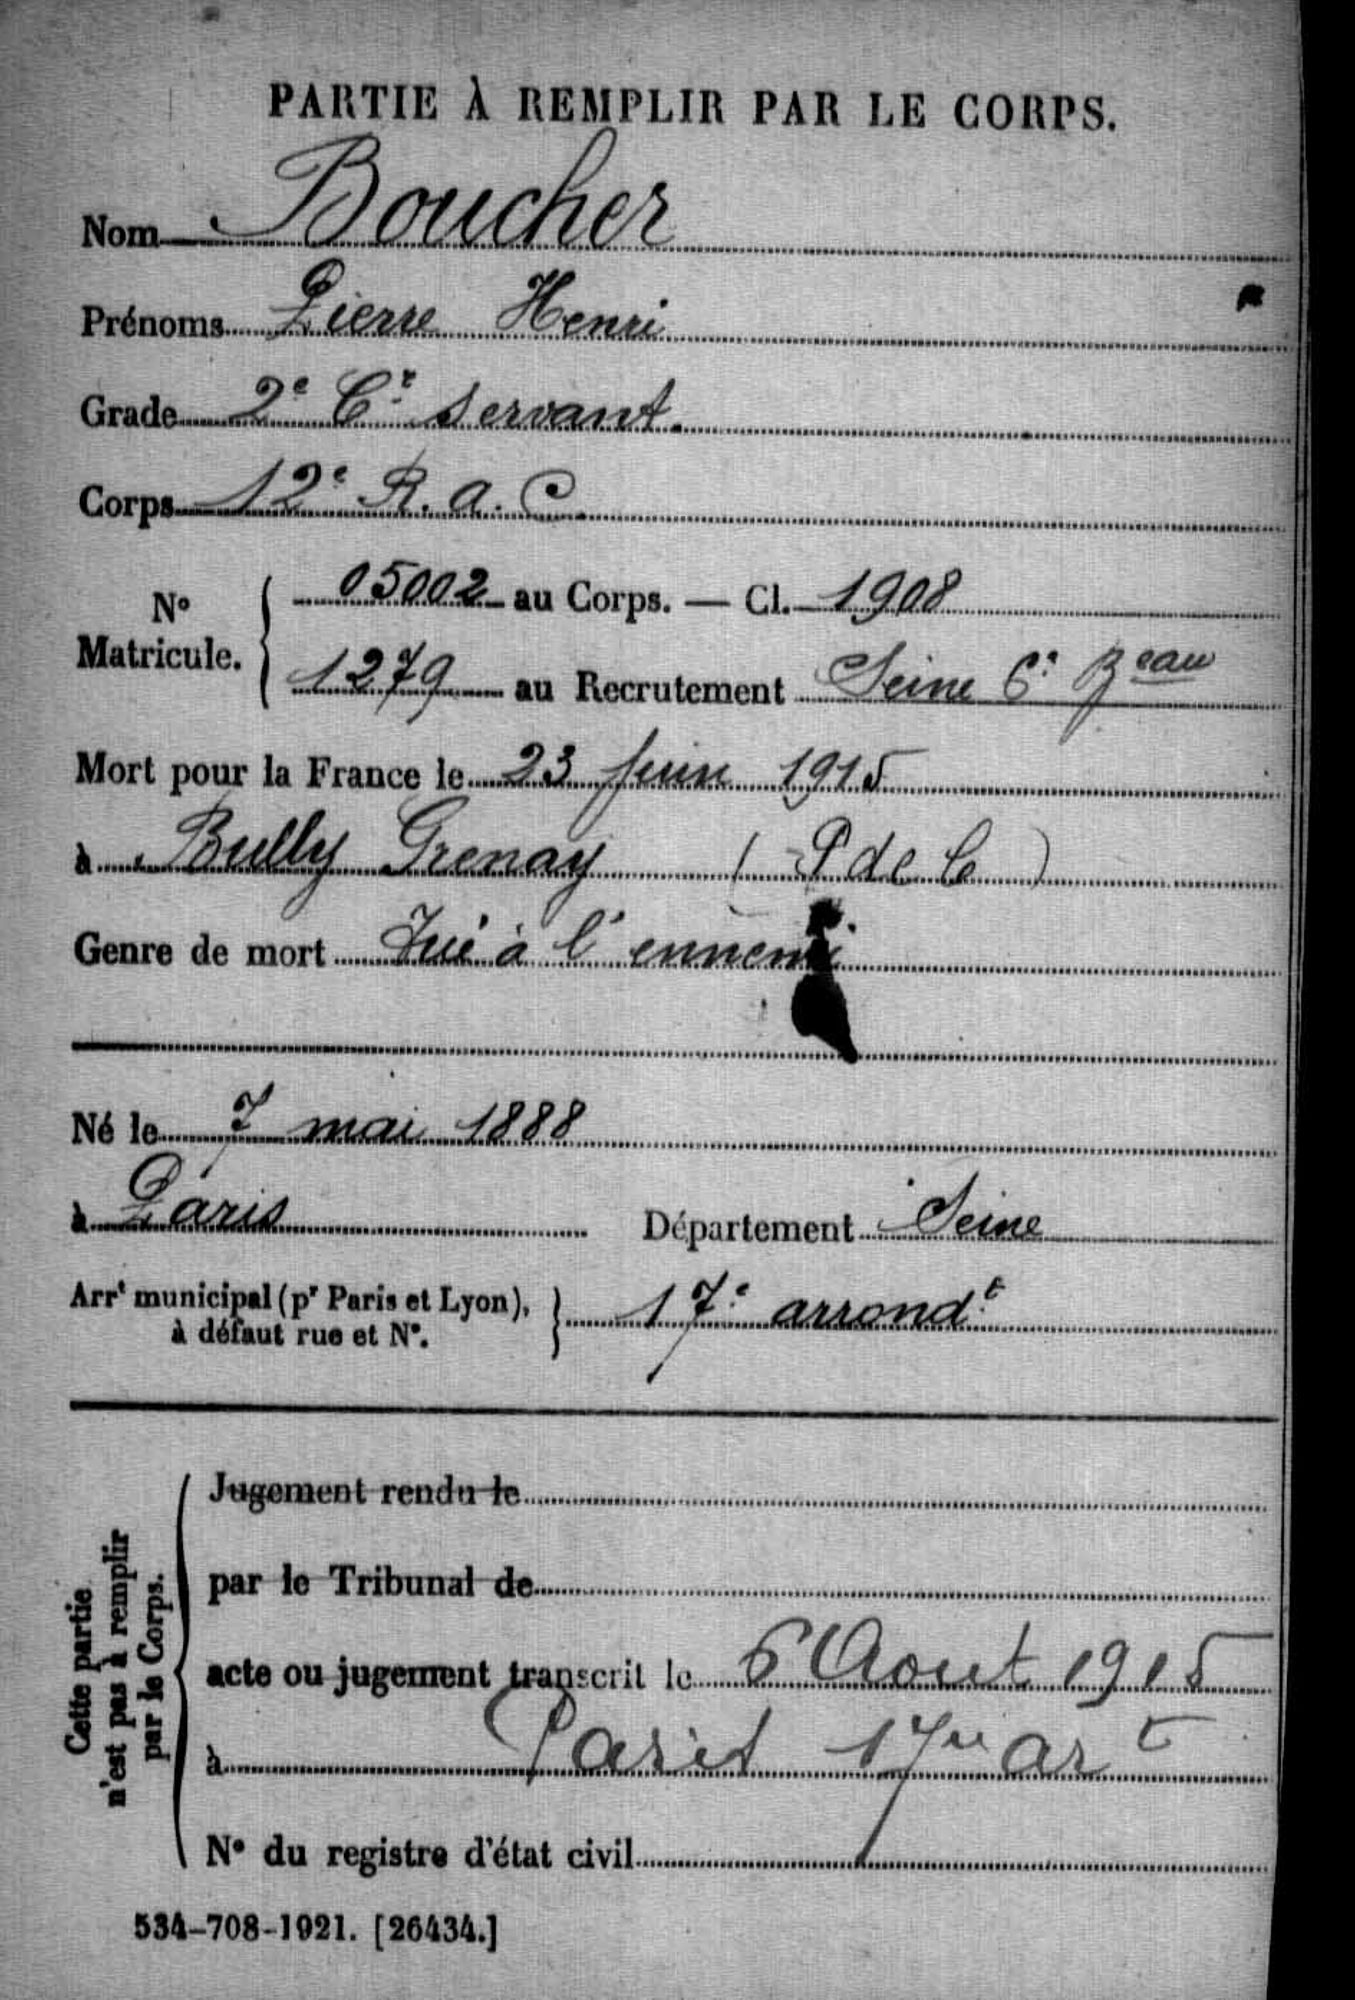 PARTIE À REMPLIR PAR LE CORPS.
Nom Boucher
Prénoms Pierre Henri
Grade 2e Ct servant.
Corps 12e R. a. C
N° Matricule. 05002 au Corps. — Cl. 1908
1279 au Recrutement Seine 6e Beau
Mort pour la France le 23 Juin 1915
à Bully Grenay ( P de C )
Genre de mort Tué à l'ennemi
Né le 7 mai 1888
à Paris Département Seine
Arrt municipal (pr Paris et Lyon), à défaut rue et N°. 17e arrondt
Cette partie n'est pas à remplir par le Corps.
Jugement rendu le
par le Tribunal de
acte ou jugement transcrit le 6 Aout 1915
à Paris 17me art
N° du registre d'état civil
534-708-1921. [26434.]